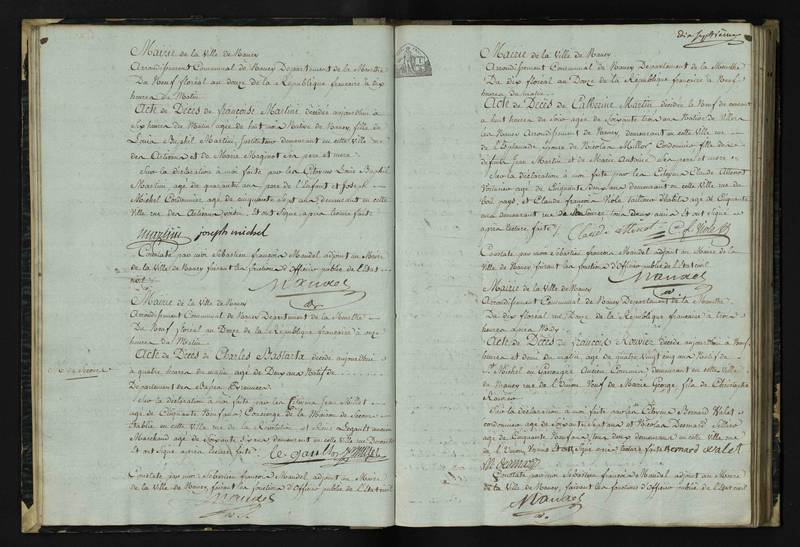 Mairie de la Ville de Nancy
Arrondissement Communal de Nancy Departement de la Meurthe
Du Neuf floréal an douze de la République française à dix
heures du Matin
Acte de Décès de françoise Martini décédée aujourd'hui à
Six heures du Matin agée de huit mois Native de Nancy, fille de
Louis Baptist Martini, Instituteur demeurant en cette Ville rue
des Artisans et de Marie Maginot Ses pere et mere
Sur la déclaration à moi faite par les Citoyens Louis Baptist
Martini, agé de quarante ans pere de l'Enfant et Joseph
Michel Cordonnier, agé de cinquante Sept ans demeurant en cette
Ville rue des Artisans Et ont Signé après lecture faite
Martini joseph michel
Constaté par moi Sébastien françois Mandel adjoint au Maire
de la Ville de Nancy faisant les fonctions d'Officier public de l'Etat
civil
Mandel
Mairie de la Ville de Nancy
Arrondissement Communal de Nancy Departement de la Meurthe
Du Neuf floréal an Douze de la République française à
heures du Matin
Acte de Décès de Charles Bastarta décédé aujourd'hui
à quatre heures du matin agé de Deux ans Natif de
Departement des Basses Pyrennées
Sur la déclaration à moi faite par les Citoyens Jean Millot
agé de Cinquante Neuf ans Concierge de la Maison de Secours
Etablie en cette Ville rue de la Révolution et René Legault ancien
Marchand agé de Soixante ans demeurant en cette Ville rue
Et ont signé après lecture faite. le gault
Constaté par moi Sébastien françois Mandel adjoint au Maire
de la Ville de Nancy, faisant les fonctions d'Officier public de l'Etat civil
Mandel
dix Septième
Mairie de la Ville de Nancy
Arrondissement Communal de Nancy Departement de la Meurthe
Du dix floréal an Douze de la République françoise à Neuf
heures du matin
Acte de Décès de Catherine Martin décédée le Neuf du courant
à huit heures du Soir agée de Soixante trois ans Native de Villers
les Nancy Arrondissement de Nancy, demeurant en cette Ville rue
de l'Esplanade Epouse de Nicolas Cordonnier fille de
défunt Jean Martin et de Marie Antoine Ses pere et mere
Sur la déclaration à moi faite par les Citoyens Claude Allenot
Voiturier agé de Cinquante ans demeurant en cette Ville rue du
bon pays, et Claude françois Viole agé de Cinquante
ans demeurant rue tous deux amis Et ont Signé
après lecture faite
Claude allenot C. f. Viole
Constaté par moi Sébastien françois Mandel adjoint au Maire de la
Ville de Nancy faisant les fonctions d'Officier public de l'Etat civil
Mandel
Mairie de la Ville de Nancy
Arrondissement Communal de Nancy Departement de la Meurthe
Du dix floréal an Douze de la République françoise à trois
heures après Midy
Acte de Décès de françois Rouvier décédé aujourd'hui à Neuf
heures et demi du matin, agé de quatre Vingt cinq ans Natif de
St Michel Ancien Commis demeurant en cette Ville
de Nancy rue de l'Union Veuf de Marie George, fils de Christophe
Rouvier
Sur la déclaration à moi faite par les Citoyens Bernard Valet
cordonnier agé de Soixante et Sept ans et Nicolas Desmard
agé de Cinquante Neuf ans, tous deux demeurant en cette Ville rue
de l'Union Et ont Signé après lecture faite Bernard Valet
Constaté par moi Sébastien françois Mandel, adjoint au Maire
de la Ville de Nancy, faisant les fonctions d'Officier public de l'Etat civil
Mandel